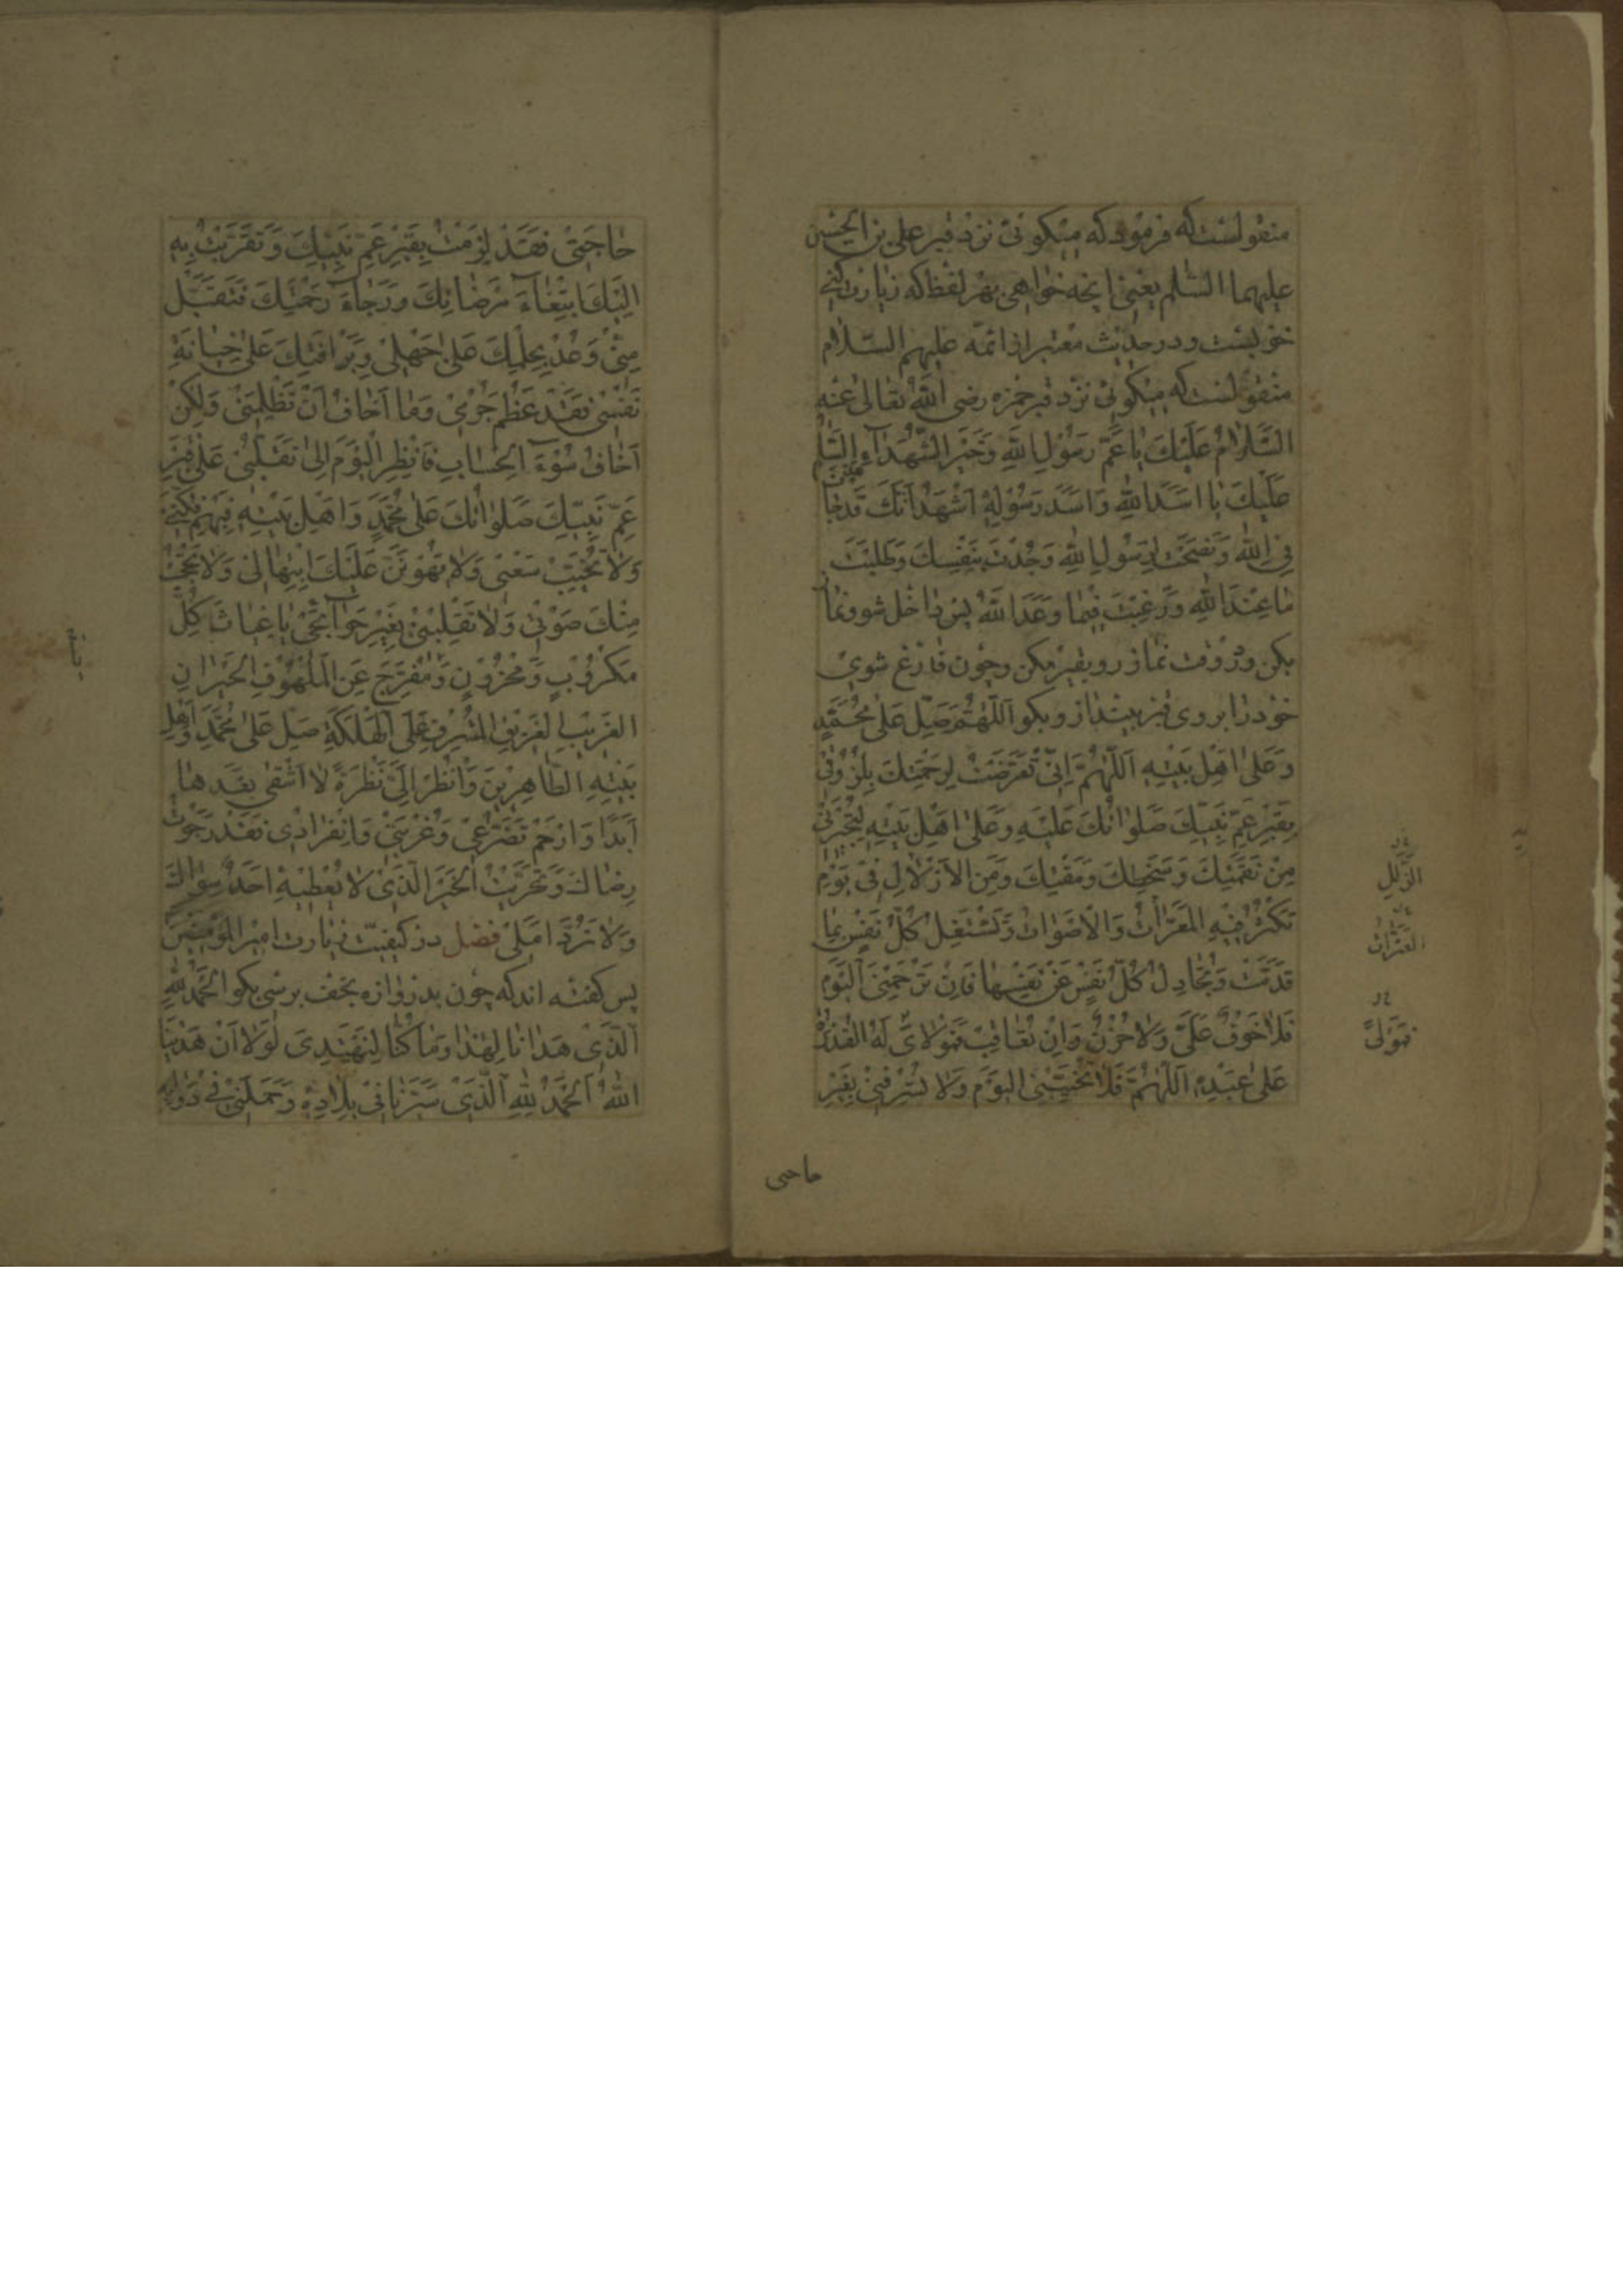 منقولست که فرمود که میکوئی نزد قبر علی بن الحسین
علیهما السلم یعنی انچه خواهی بهر لفظ که زیارت کنی
خوبست و در حدیث معتبر از ائمه علیهم السلام
منقولست که میکوئی نزد قبر حمزه رضی الله تعالی عنه
اَلسَّلامُ عَلَیْكَ یا عَمَّ رَسُولِ اللهِ وَخَیْرَ الشُّهَدآءِ السَّلم
عَلَیْكَ یا اَسَدَ اللهِ وَاَسَدَ رَسُولِهِ اَشْهَدُ اَنَّكَ قَدْ جا
هَدْتَ
فِی اللهِ وَنَصَحْتَ لِرَسُولِ اللهِ وَجُدْتَ بِنَفْسِكَ وَطَلَبْتَ
ما عِنْدَ اللهِ وَرَغِبْتَ فیما وَعَدَ اللهُ پس داخل شو و نماز
بکن و در وقت نماز رو بقبر مکن و چون فارغ شوی
خود را بروی قبر بینداز و بکو اَللّهُمَّ صَلِّ عَلی مُحَمَّدٍ
وَعَلی اَهْلِ بَیْتِهِ اَللّهُمَّ اِنّی تَعَرَّضْتُ لِرَحْمَتِكَ بِلُزُوقی
بِقَبْرِ عَمِّ نَبِیِّكَ صَلَواتُكَ عَلَیْهِ وَعَلی اَهْلِ بَیْتِهِ لِتُجیرَنی
مِنْ نَقِمَتِكَ وَسَخَطِكَ وَمَقْتِكَ وَمِنَ الْاَزْلالِ فی یَوْمٍ
تَکْثُرُ فیهِ الْمَعَرّاتُ وَالْاَصْواتُ وَتَشْتَغِلُ کُلُّ نَفْسٍ بِما
قَدَّمَتْ وَتُجادِلُ کُلُّ نَفْسٍ عَنْ نَفْسِها فَاِنْ تَرْحَمْنِیَ الْیَوْمَ
فَلا خَوْفٌ عَلَیَّ وَلا حُزْنٌ وَاِنْ تُعاقِبْ فَمَوْلایَ لَهُ الْقُدْرَةُ
عَلی عَبْدِهِ اَللّهُمَّ فَلا تُخَیِّبْنِی الْیَوْمَ وَلا تَصْرِفْنی بِغَیْرِ
الزَّلَلِ
الْعَثَراتُ
فَمَوْلیً
حاجتی
حاجَتی فَقَدْ لَزِقْتُ بِقَبْرِ عَمِّ نَبِیِّكَ وَتَقَرَّبْتُ بِهِ
اِلَیْكَ ابْتِغآءَ مَرْضاتِكَ وَرَجآءَ رَحْمَتِكَ فَتَقَبَّلْ
مِنّی وَعُدْ بِحِلْمِكَ عَلی جَهْلی وَبِرَافَتِكَ عَلی جِنایَةِ
نَفْسی فَقَدْ عَظُمَ جُرْمی وَما اَخافُ اَنْ تَظْلِمَنی وَلکِنْ
اَخافُ سُوءَ الْحِسابِ فَانْظُرِ الْیَوْمَ اِلی تَقَلُّبی عَلی قَبْرِ
عَمِّ نَبِیِّكَ صَلَواتُكَ عَلی مُحَمَّدٍ وَاَهْلِ بَیْتِهِ فَبِهِمْ فُکَّنی
وَلا تُخَیِّبْ سَعْیی وَلا یَهُونَنَّ عَلَیْكَ ابْتِهالی وَلا تَحْجُبْ
مِنْكَ صَوْتی وَلا تَقْلِبْنی بِغَیْرِ حَوآئِجی یا غِیاثَ کُلِّ
مَکْرُوبٍ وَمَحْزُونٍ وَمُفَرِّجَ عَنِ الْمَلْهُوفِ الْحَیْرانِ
الْغَریبِ الْغَریقِ الْمُشْرِفِ عَلَی الْهَلَکَةِ صَلِّ عَلی مُحَمَّدٍ وَاَهْلِ
بَیْتِهِ الطّاهِرینَ وَانْظُرْ اِلَیَّ نَظْرَةً لا اَشْقی بَعْدَها
اَبَدًا وَارْحَمْ تَضَرُّعی وَغُرْبَتی وَانْفِرادی فَقَدْ رَجَوْتُ
رِضاكَ وَتَحَرَّیْتُ الْخَیْرَ الَّذی لا یُعْطیهِ اَحَدٌ سِواكَ
وَلا تَرُدَّ اَمَلی فصل در کیفیت زیارت امیر المؤمنین
پس کفته اند که چون بدروازه نجف برسی بکو اَلْحَمْدُ لِلّهِ
الَّذی هَدانا لِهذا وَما کُنّا لِنَهْتَدِیَ لَوْلا اَنْ هَدینَا
اللهُ اَلْحَمْدُ لِلّهِ الَّذی سَیَّرَنی فی بِلادِهِ وَحَمَلَنی فی دَوابِّهِ